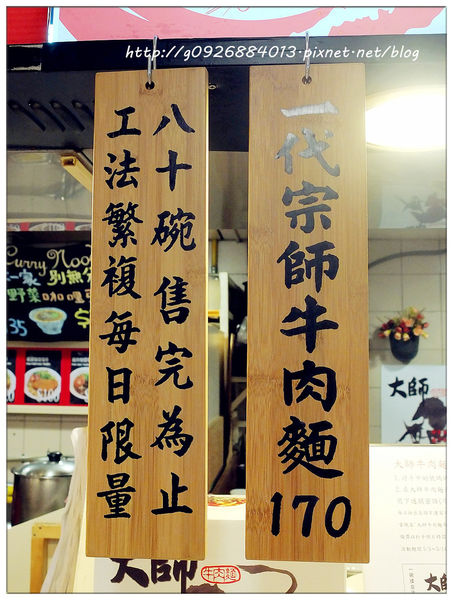 http://g0926884013.pixnet.net/blog
一代宗師牛肉麵170
工法繁複每日限量
八十碗售完為止
Curry Noo
野菜咖哩
35
大師
大師牛肉麵
大師
牛肉麵